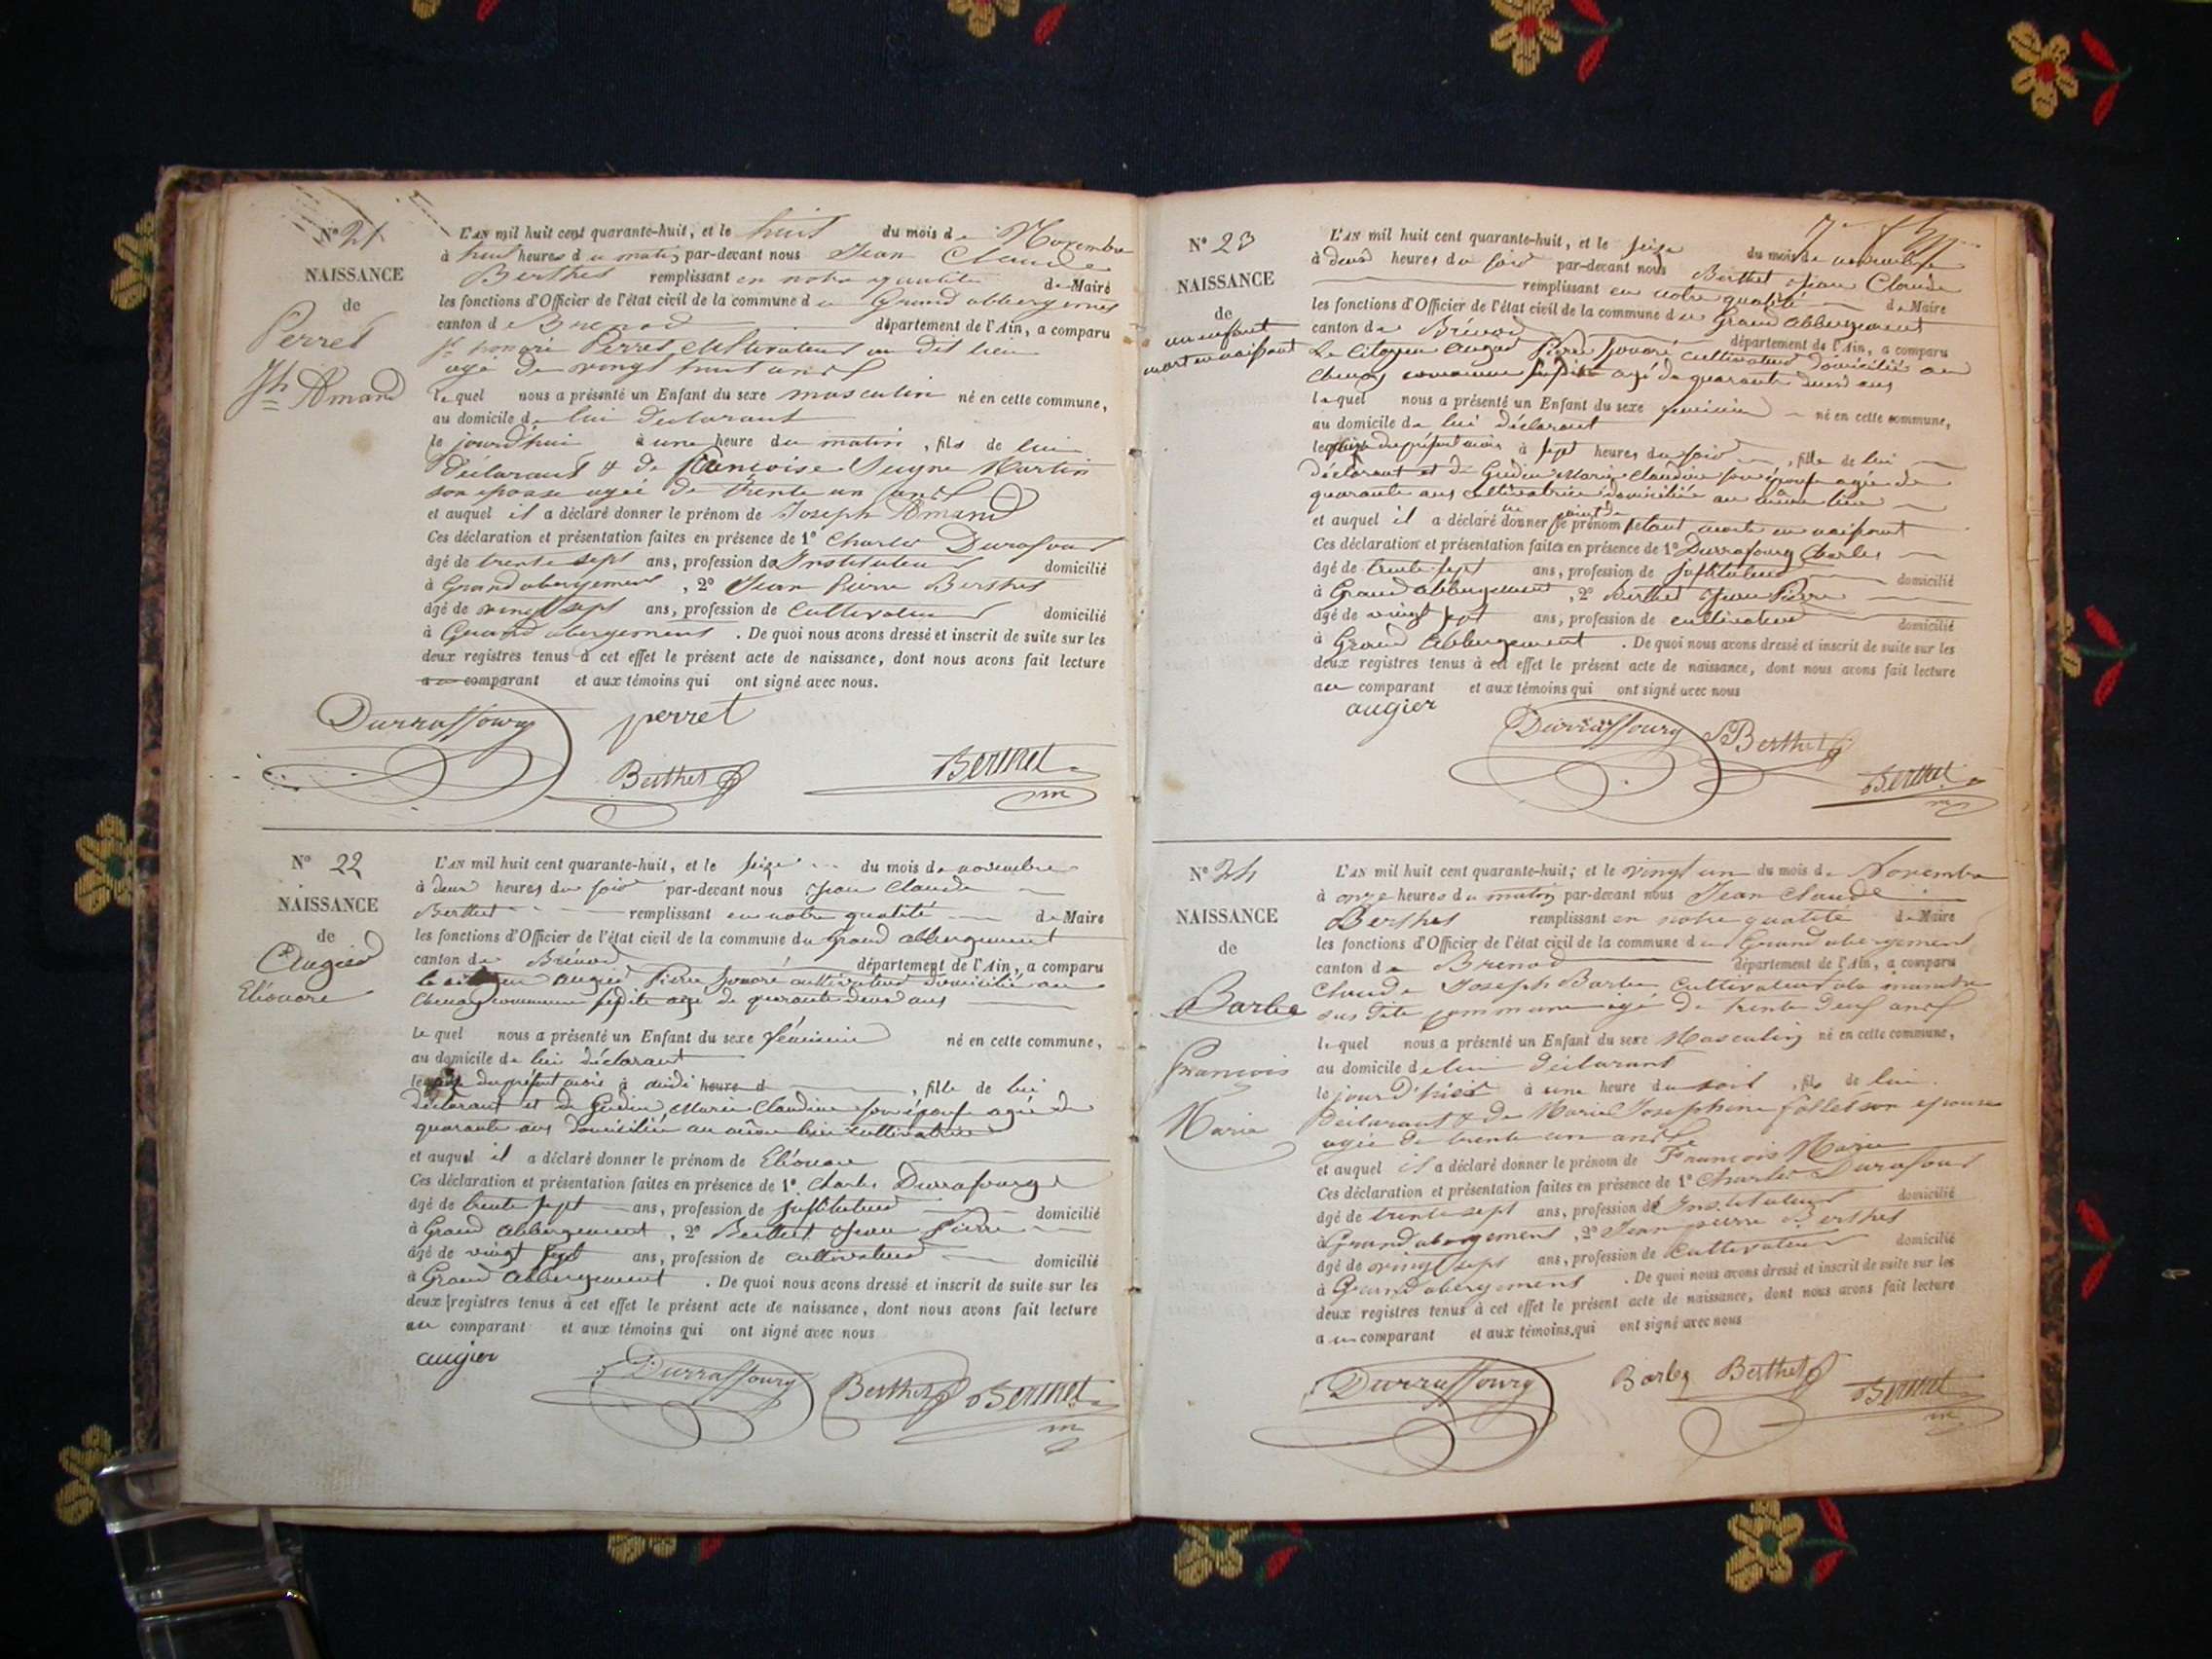 N° 21
NAISSANCE
de
Perret
Jh Amand
L'AN mil huit cent quarante-huit, et le huit du mois de Novembre
à huit heures du matin par-devant nous Jean Claude
Berthet remplissant en notre qualité de Maire
les fonctions d'Officier de l'état civil de la commune du Grand abbergement
canton de Brenod département de l'Ain, a comparu
honoré Perret Cultivateur au dit lieu
agé de vingt huit ans
lequel nous a présenté un Enfant du sexe masculin né en cette commune,
au domicile de lui déclarant
le jourd'hui à une heure du matin, fils de lui
déclarant & de françoise Martin
son epouse agée de trente un ans
et auquel il a déclaré donner le prénom de Joseph Amand
Ces déclaration et présentation faites en présence de 1° Charles Durafour
âgé de trente sept ans, profession de Instituteur domicilié
à Grand abergement, 2° Jean Pierre Berthet
âgé de vingt sept ans, profession de Cultivateur domicilié
à Grand abergement. De quoi nous avons dressé et inscrit de suite sur les
deux registres tenus à cet effet le présent acte de naissance, dont nous avons fait lecture
au comparant et aux témoins qui ont signé avec nous.
Durraffourg perret
Berthet Berthet
m
N° 22
NAISSANCE
de
Augier
Eléonore
L'AN mil huit cent quarante-huit, et le seize du mois de novembre
à deux heures du soir par-devant nous Jean Claude
Berthet remplissant en notre qualité de Maire
les fonctions d'Officier de l'état civil de la commune du Grand abbergement
canton de Brénod département de l'Ain, a comparu
le citoyen Augier Pierre honoré cultivateur domicilié au
Chenay commune susdite agé de quarante deux ans
lequel nous a présenté un Enfant du sexe féminin né en cette commune,
au domicile de lui déclarant
le du présent mois à midi heure d, fille de lui
déclarant et de Gudin Marie Claudine son épouse agée de
quarante ans domiciliée au même lieu cultivatrice
et auquel il a déclaré donner le prénom de Eléonore
Ces déclaration et présentation faites en présence de 1° Charles Durrafourg
âgé de trente sept ans, profession de Instituteur domicilié
à Grand Abbergement, 2° Berthet Jean Pierre
âgé de vingt sept ans, profession de cultivateur domicilié
à Grand Abbergement. De quoi nous avons dressé et inscrit de suite sur les
deux registres tenus à cet effet le présent acte de naissance, dont nous avons fait lecture
au comparant et aux témoins qui ont signé avec nous
augier
Durraffourg Berthet Berthet
m
N° 23
NAISSANCE
de
un enfant
mort en naissant
L'AN mil huit cent quarante-huit, et le seize du mois de novembre
à deux heures du soir par-devant nous Berthet Jean Claude
remplissant en notre qualité de Maire
les fonctions d'Officier de l'état civil de la commune du Grand Abbergement
canton de Brénod département de l'Ain, a comparu
Le Citoyen Augier Pierre honoré cultivateur domicilié au
Chenay commune susdite agé de quarante deux ans
lequel nous a présenté un Enfant du sexe féminin né en cette commune,
au domicile de lui déclarant
le du présent mois à sept heures du soir, fille de lui
déclarant et de Gudin Marie Claudine son épouse agée de
quarante ans cultivatrice domiciliée au même lieu
et auquel il a déclaré ne donner point de prénom étant morte en naissant
Ces déclaration et présentation faites en présence de 1° Durrafourg Charles
âgé de trente sept ans, profession de Instituteur domicilié
à Grand Abbergement, 2° Berthet Jean Pierre
âgé de vingt sept ans, profession de cultivateur domicilié
à Grand Abbergement. De quoi nous avons dressé et inscrit de suite sur les
deux registres tenus à cet effet le présent acte de naissance, dont nous avons fait lecture
au comparant et aux témoins qui ont signé avec nous
augier
Durraffourg Berthet
Berthet
m
N° 24
NAISSANCE
de
Barbe
François
Marie
L'AN mil huit cent quarante-huit; et le vingt un du mois de Novembre
à onze heures du matin par-devant nous Jean Claude
Berthet remplissant en notre qualité de Maire
les fonctions d'Officier de l'état civil de la commune du Grand abergement
canton de Brenod département de l'Ain, a comparu
Claude Joseph Barbe Cultivateur
sus dite commune agé de trente ans
lequel nous a présenté un Enfant du sexe Masculin né en cette commune,
au domicile de lui déclarant
le jour d'hier à une heure du soir, fils de lui
déclarant & de Marie Josephine follet son epouse
agée de trente un ans
et auquel il a déclaré donner le prénom de François Marie
Ces déclaration et présentation faites en présence de 1° Charles Durafour
âgé de trente sept ans, profession de Instituteur domicilié
à Grand abergement, 2° Jean pierre Berthet
âgé de vingt sept ans, profession de Cultivateur domicilié
à Grand abergement. De quoi nous avons dressé et inscrit de suite sur les
deux registres tenus à cet effet le présent acte de naissance, dont nous avons fait lecture
au comparant et aux témoins qui ont signé avec nous
Durraffourg Barbe Berthet
Berthet
m